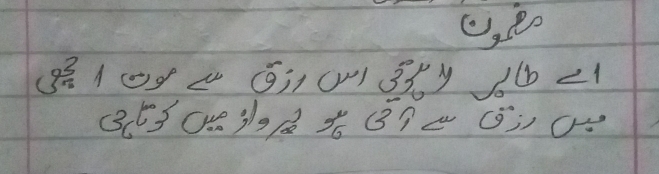 مضمون
اے طائر لاہوتی اس رزق سے موت اچھی
جس رزق سے آتی ہو پرواز میں کوتاہی